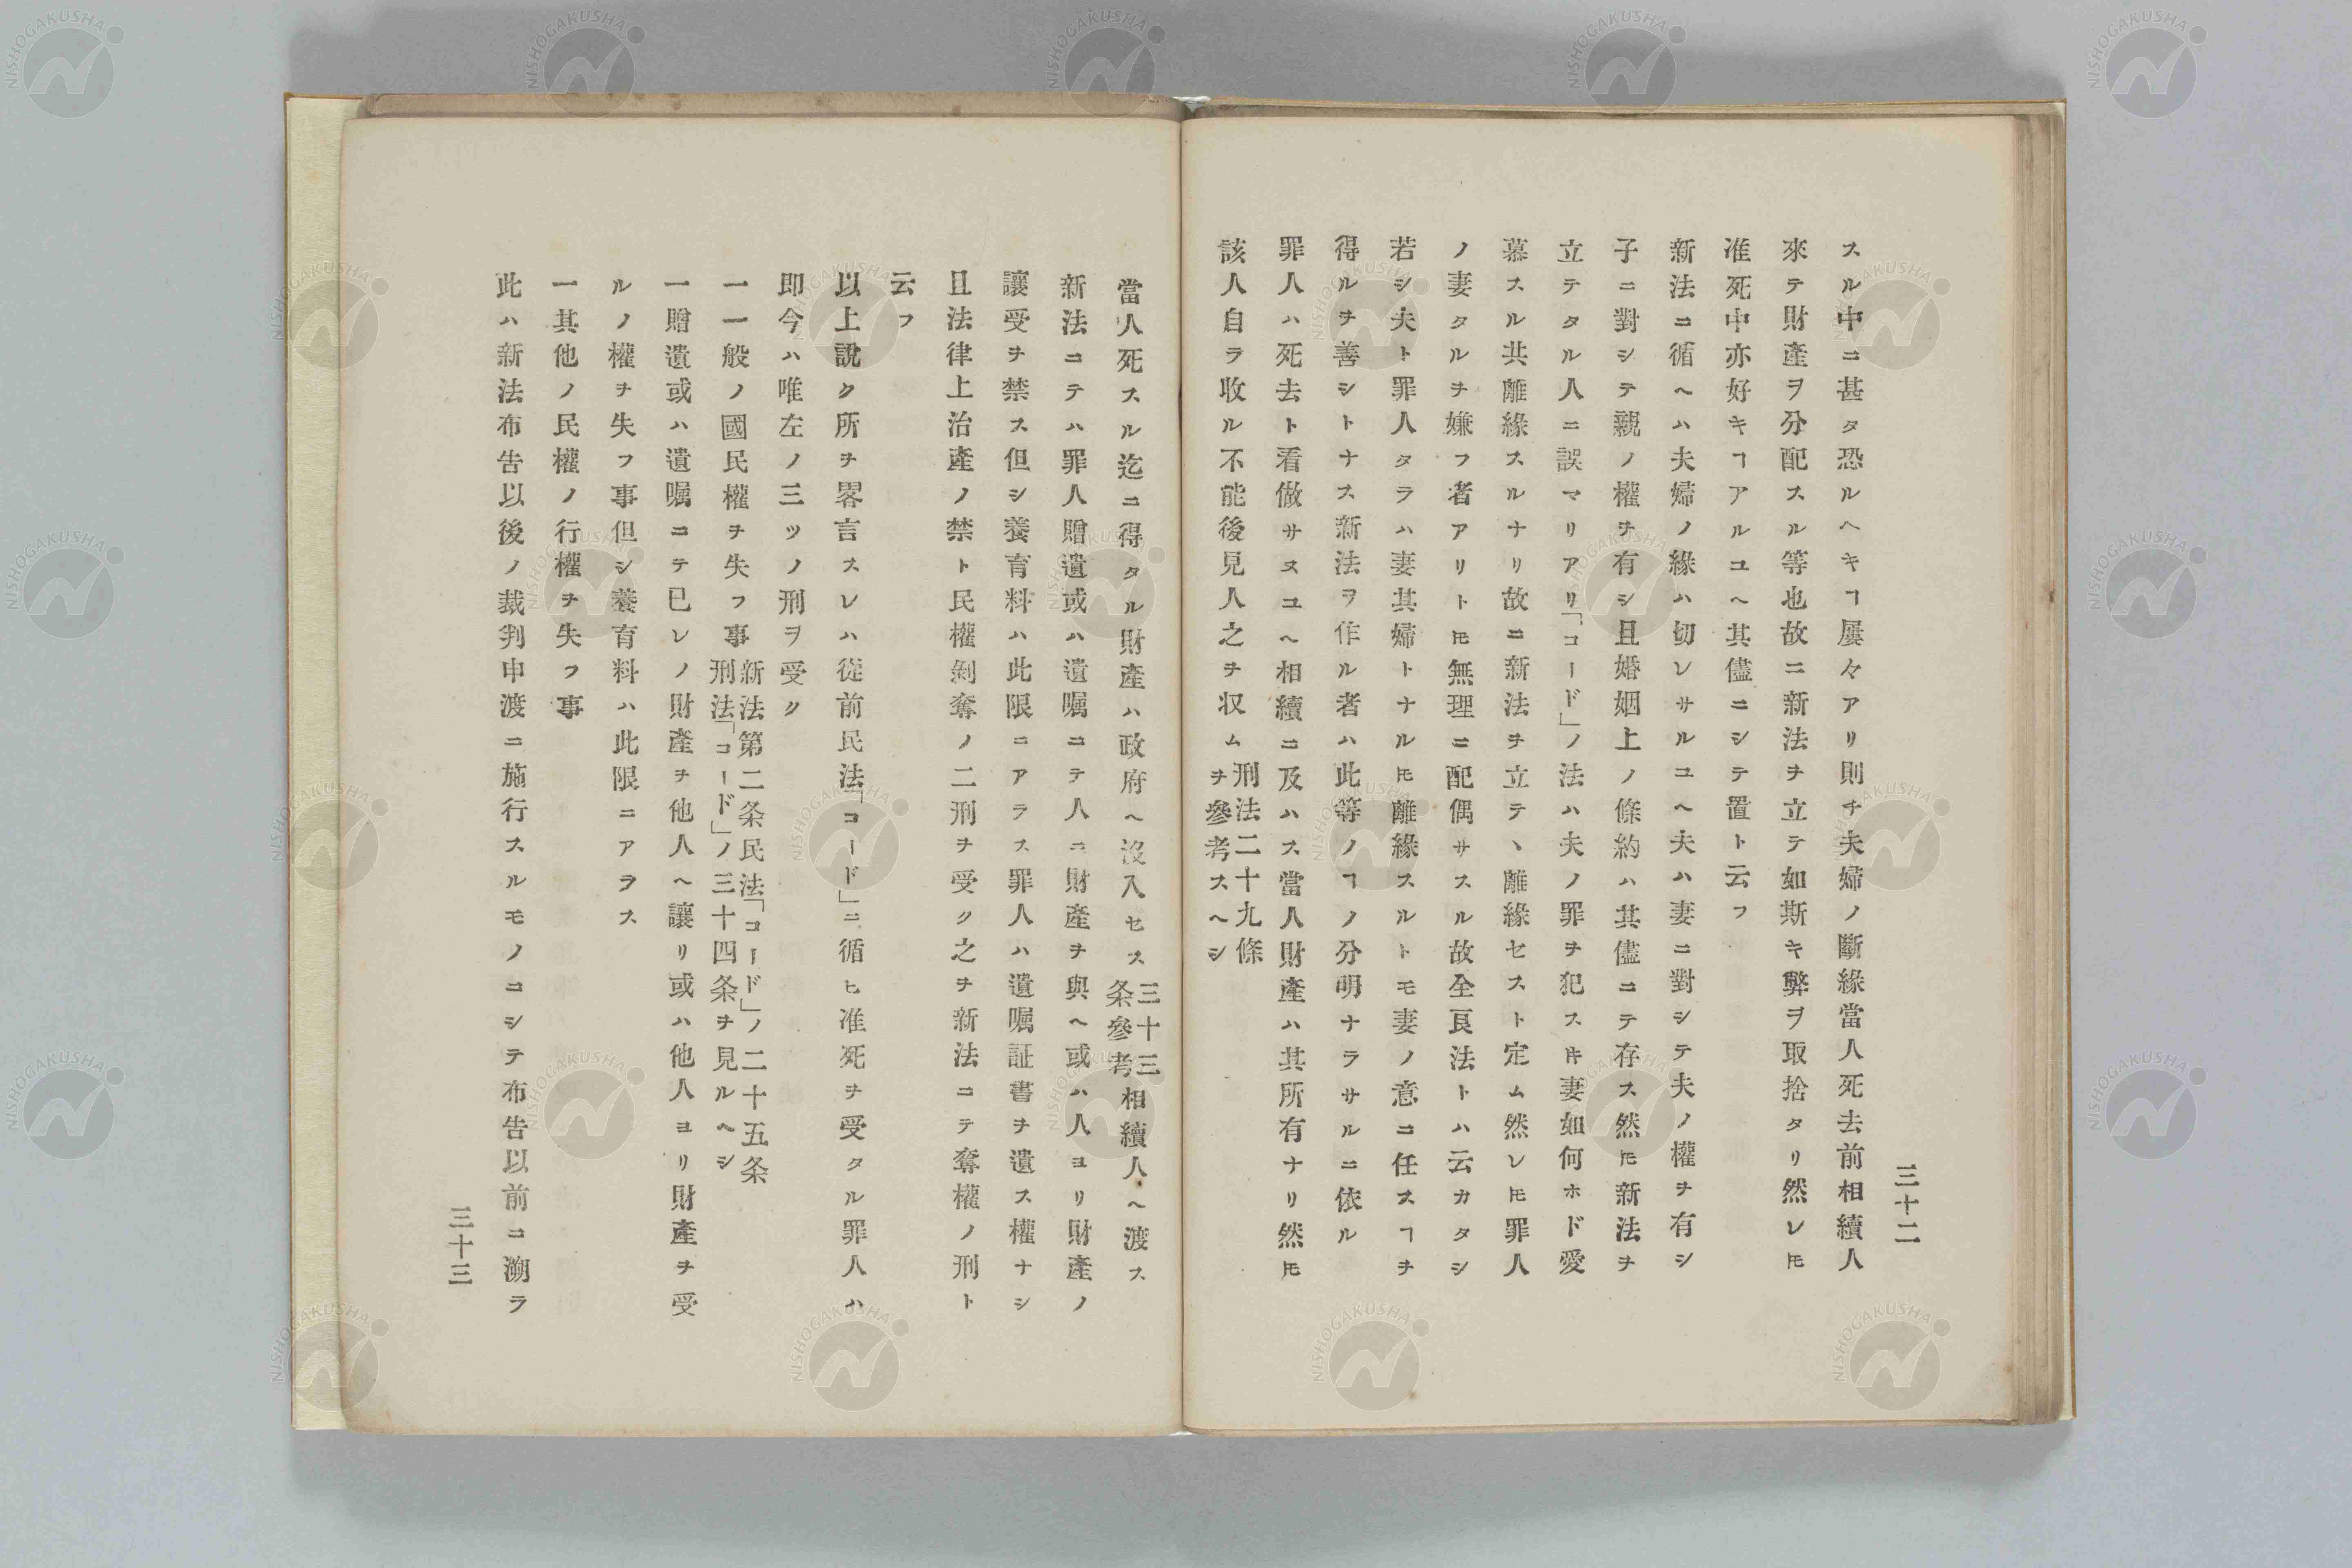 三十二
スル中ニ甚タ恐ルヘキヿ屢々アリ則チ夫婦ノ斷緣當人死去前相續人
來テ財產ヲ分配スル等也故ニ新法ヲ立テ如斯キ弊ヲ取捨タリ然レ𪜈
准死中亦好キヿアルユヘ其儘ニシテ置ト云フ
新法ニ循ヘハ夫婦ノ緣ハ切レサルユヘ夫ハ妻ニ對シテ夫ノ權ヲ有シ
子ニ對シテ親ノ權ヲ有シ且婚姻上ノ條約ハ其儘ニテ存ス然𪜈新法ヲ
立テタル人ニ誤マリアリ「コード」ノ法ハ夫ノ罪ヲ犯ストキ妻如何ホド愛
慕スル共離緣スルナリ故ニ新法ヲ立テヽ離緣セスト定ム然レ𪜈罪人
ノ妻タルヲ嫌フ者アリト𪜈無理ニ配偶サスル故全良法トハ云カタシ
若シ夫ト罪人タラハ妻其婦トナル𪜈離緣スルトモ妻ノ意ニ任スヿヲ
得ルヲ善シトナス新法ヲ作ル者ハ此等ノヿノ分明ナラサルニ依ル
罪人ハ死去ト看倣サヌユヘ相續ニ及ハス當人財產ハ其所有ナリ然𪜈
該人自ラ收ル不能後見人之ヲ収ム刑法二十九條ヲ參考スヘシ
當人死スル迄ニ得タル財產ハ政府ヘ沒入セス三十三条參考相續人ヘ渡ス
新法ニテハ罪人贈遺或ハ遺囑ニテ人ニ財產ヲ與ヘ或ハ人ヨリ財產ノ
讓受ヲ禁ス但シ養育料ハ此限ニアラス罪人ハ遺囑証書ヲ遺ス權ナシ
且法律上治產ノ禁ト民權剝奪ノ二刑ヲ受ク之ヲ新法ニテ奪權ノ刑ト
云フ
以上說ク所ヲ畧言スレハ從前民法「コード」ニ循ヒ准死ヲ受タル罪人ハ
即今ハ唯左ノ三ツノ刑ヲ受ク
一一般ノ國民權ヲ失フ事新法第二条民法「コード」ノ二十五条刑法「コード」ノ三十四条ヲ見ルヘシ
一贈遺或ハ遺囑ニテ已レノ財產ヲ他人ヘ讓リ或ハ他人ヨリ財產ヲ受
ルノ權ヲ失フ事但シ養育料ハ此限ニアラス
一其他ノ民權ノ行權ヲ失フ事
此ハ新法布告以後ノ裁判申渡ニ施行スルモノニシテ布告以前ニ溯ラ
三十三
NISHOGAKUSHA